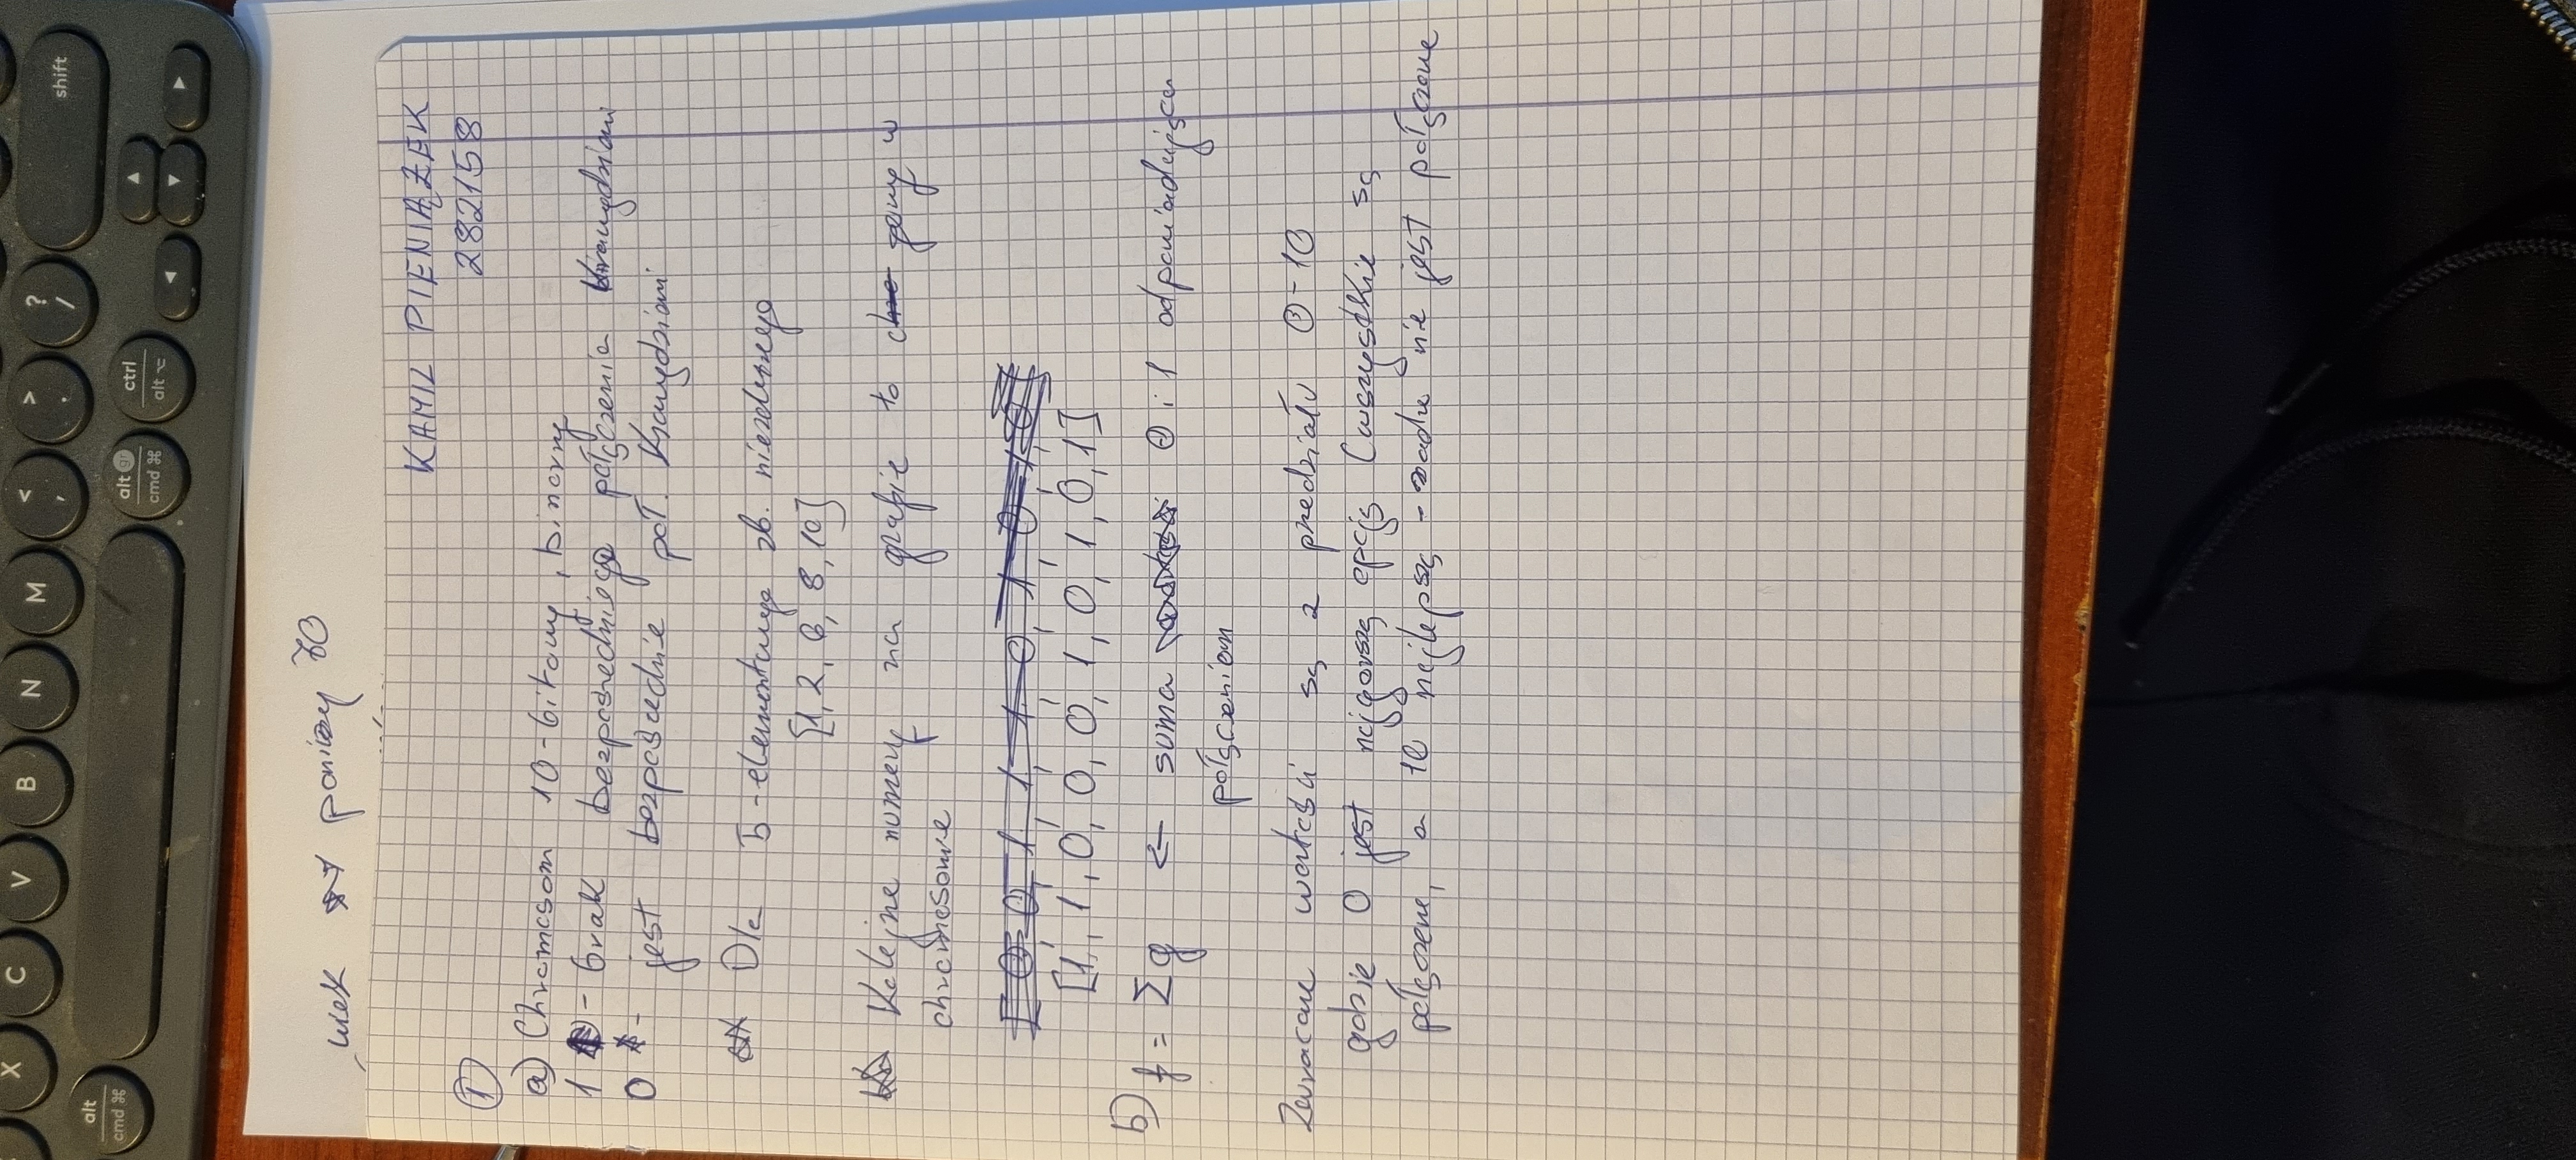 X C V B N M < , > . ? / shift
alt cmd ⌘ alt gr cmd ⌘ ctrl alt ⌥ ◄ ▲ ▼ ►
wiek poniży 70
KAMIL PIENIĄŻEK
282158
1
a) Chromosom 10-bitowy, binarny
1 - brak bezpośredniego połączenia krawędziami
0 - jest bezpośednie poł. krawędziami
Dla 5-elementowego zb. niezależnego
[1, 2, 6, 8, 10]
Kolejne numery na grafie to geny w
chromosomie
[0, 0, 1, 1, 1, 0, 1, 0, 1, 0]
[1, 1, 0, 0, 0, 1, 0, 1, 0, 1]
b) f = Σg ← suma 0 i 1 odpowiadająca
połączeniom
Zwracane wartości są z przedziału 0-10
gdzie 0 jest najgorszą opcją (wszystkie są
połączone, a 10 najlepszą - żadne nie jest połączone